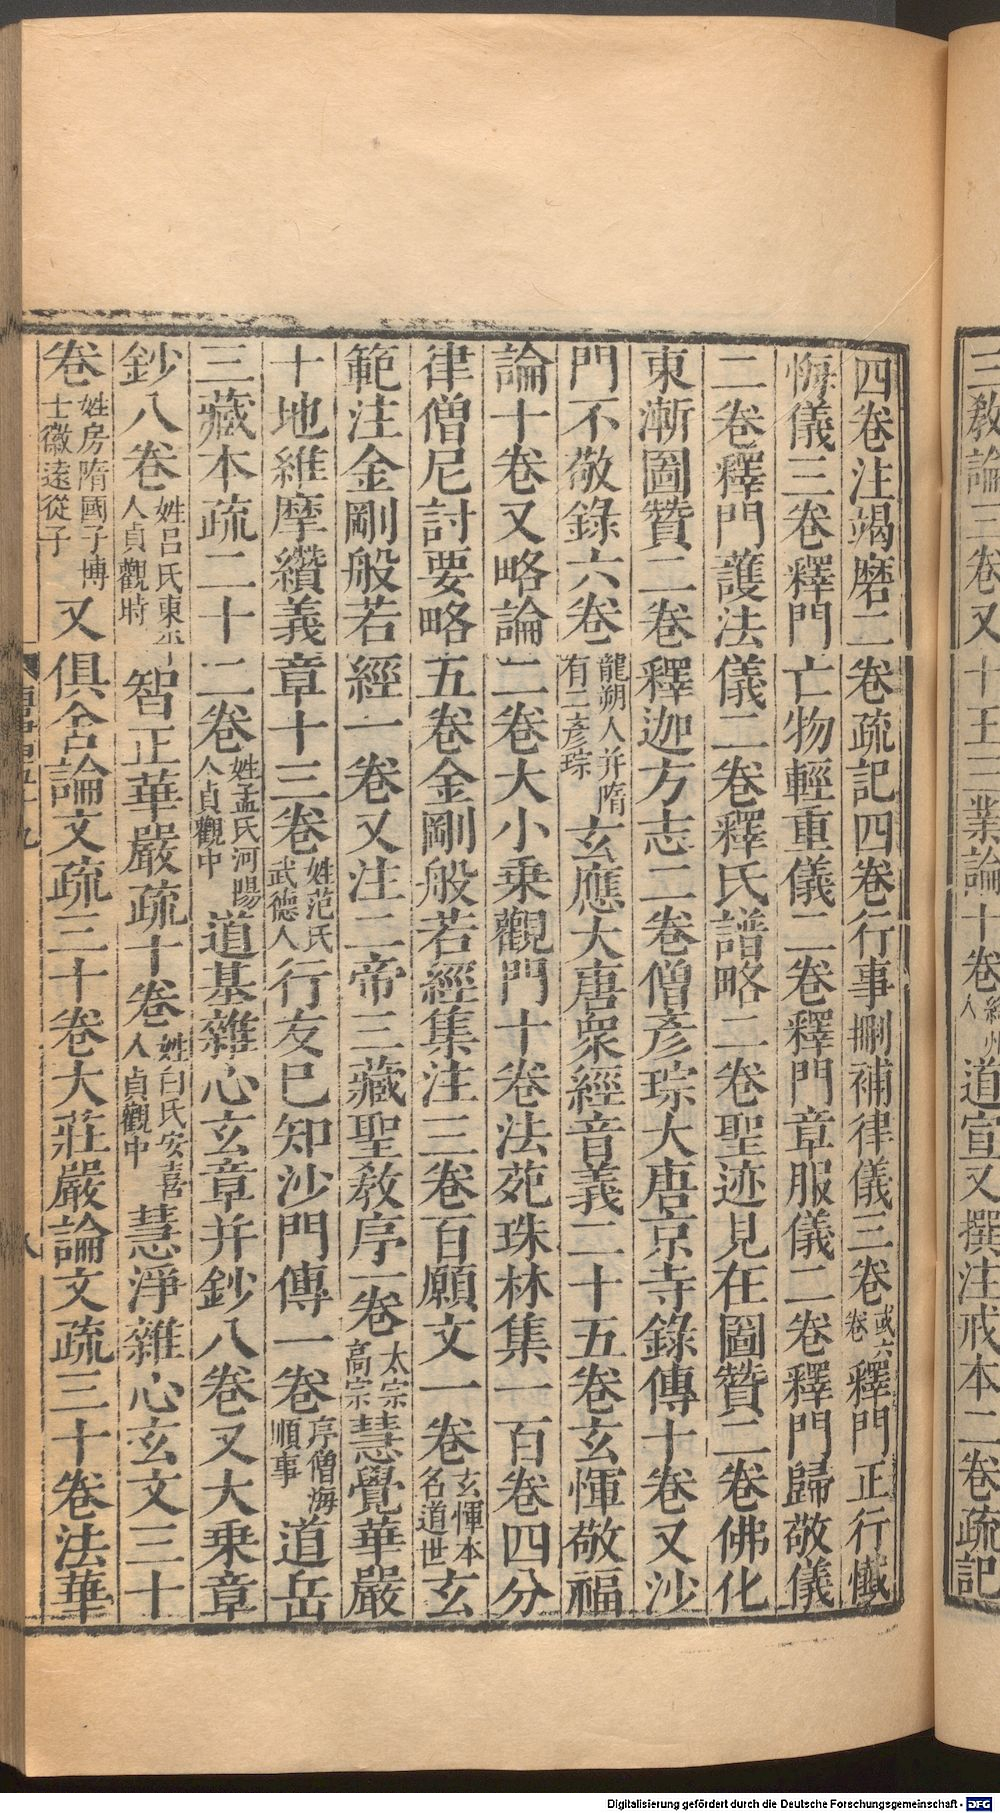 三教論三卷又十五三業論十卷絳州人道宣又撰注戒本二卷疏記
四卷注竭磨二卷疏記四卷行事刪補律儀三卷或六卷釋門正行懺
悔儀三卷釋門亡物輕重儀二卷釋門章服儀二卷釋門歸敬儀
二卷釋門護法儀二卷釋氏譜略二卷聖迹見在圖贊二卷佛化
東漸圖贊二卷釋迦方志二卷僧彥琮大唐京寺錄傳十卷又沙
門不敬錄六卷龍朔人并隋有二彥琮玄應大唐衆經音義二十五卷玄惲敬福
論十卷又略論二卷大小乘觀門十卷法苑珠林集一百卷四分
律僧尼討要略五卷金剛般若經集注三卷百願文一卷玄惲本名道世玄
範注金剛般若經一卷又注二帝三藏聖教序一卷太宗高宗慧覺華嚴
十地維摩纘義章十三卷姓范氏武德人行友巳知沙門傳一卷序僧海順事道岳
三藏本疏二十二卷姓孟氏河陽人貞觀中道基雜心玄章并鈔八卷又大乘章
鈔八卷姓呂氏東平人貞觀時智正華嚴疏十卷姓白氏安喜人貞觀中慧淨雜心玄文三十
卷姓房隋國子博士徽遠從子又俱舍論文疏三十卷大莊嚴論文疏三十卷法華
八
Digitalisierung gefördert durch die Deutsche Forschungsgemeinschaft - DFG